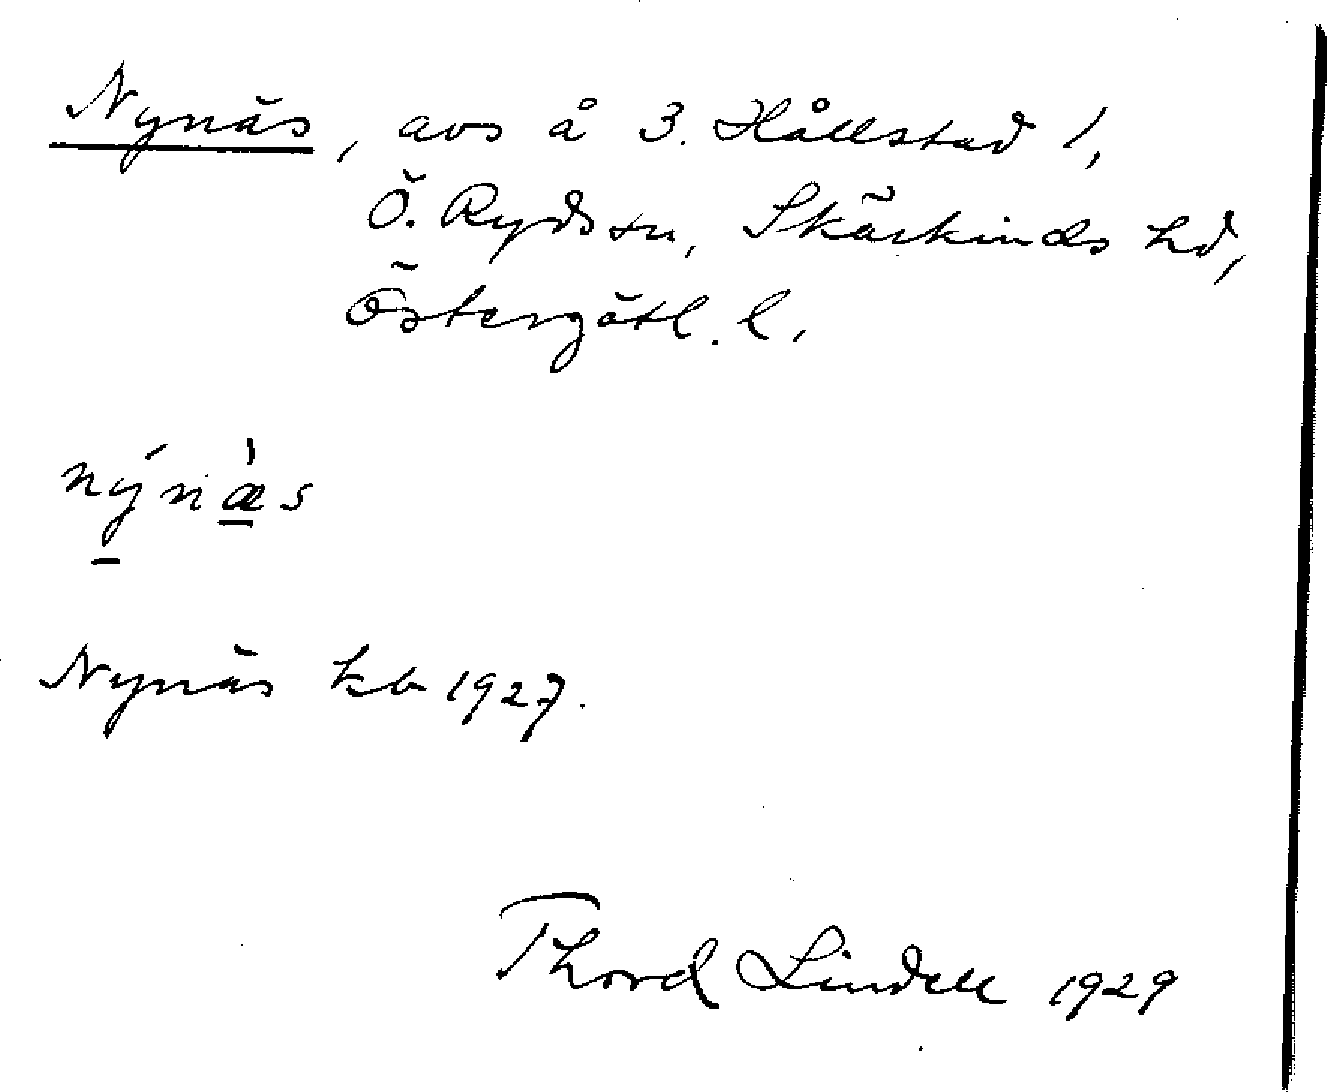 Nynäs, avs å 3. Hållstad 1,
Ö. Ryds sn, Skärkinds hd,
Östergötl. l.
nýnæ̀s
Nynäs kb 1927.
Thord Lindell 1929